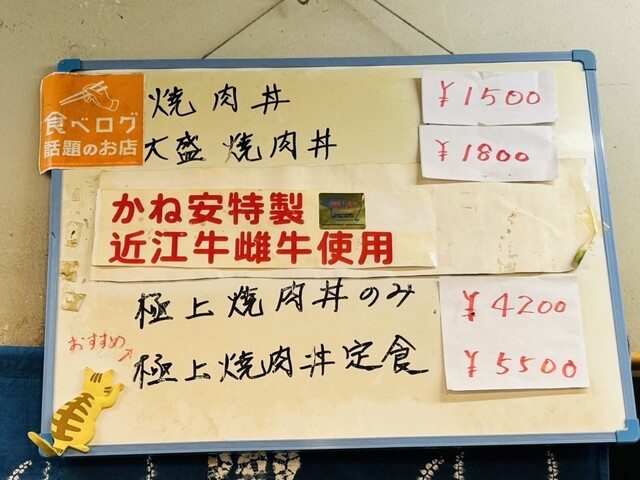 食べログ
話題のお店
焼肉丼 ¥1500
大盛焼肉丼 ¥1800
かね安特製
近江牛雌牛使用
極上焼肉丼のみ ¥4200
おすすめ
極上焼肉丼定食 ¥5500